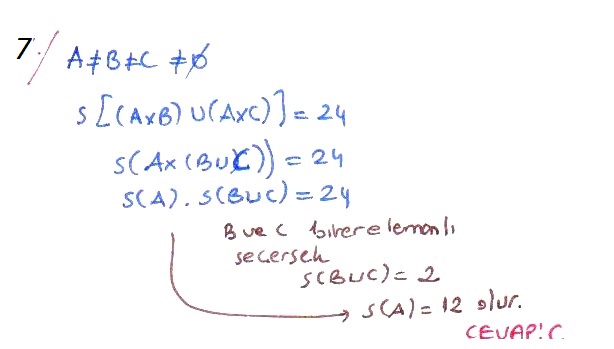 7/ A≠B≠C ≠∅
S[(AxB)∪(AxC)] = 24
S(Ax(B∪C)) = 24
S(A).S(B∪C) = 24
B ve C birer elemanlı
seçersek
S(B∪C) = 2
S(A) = 12 olur.
CEVAP: C